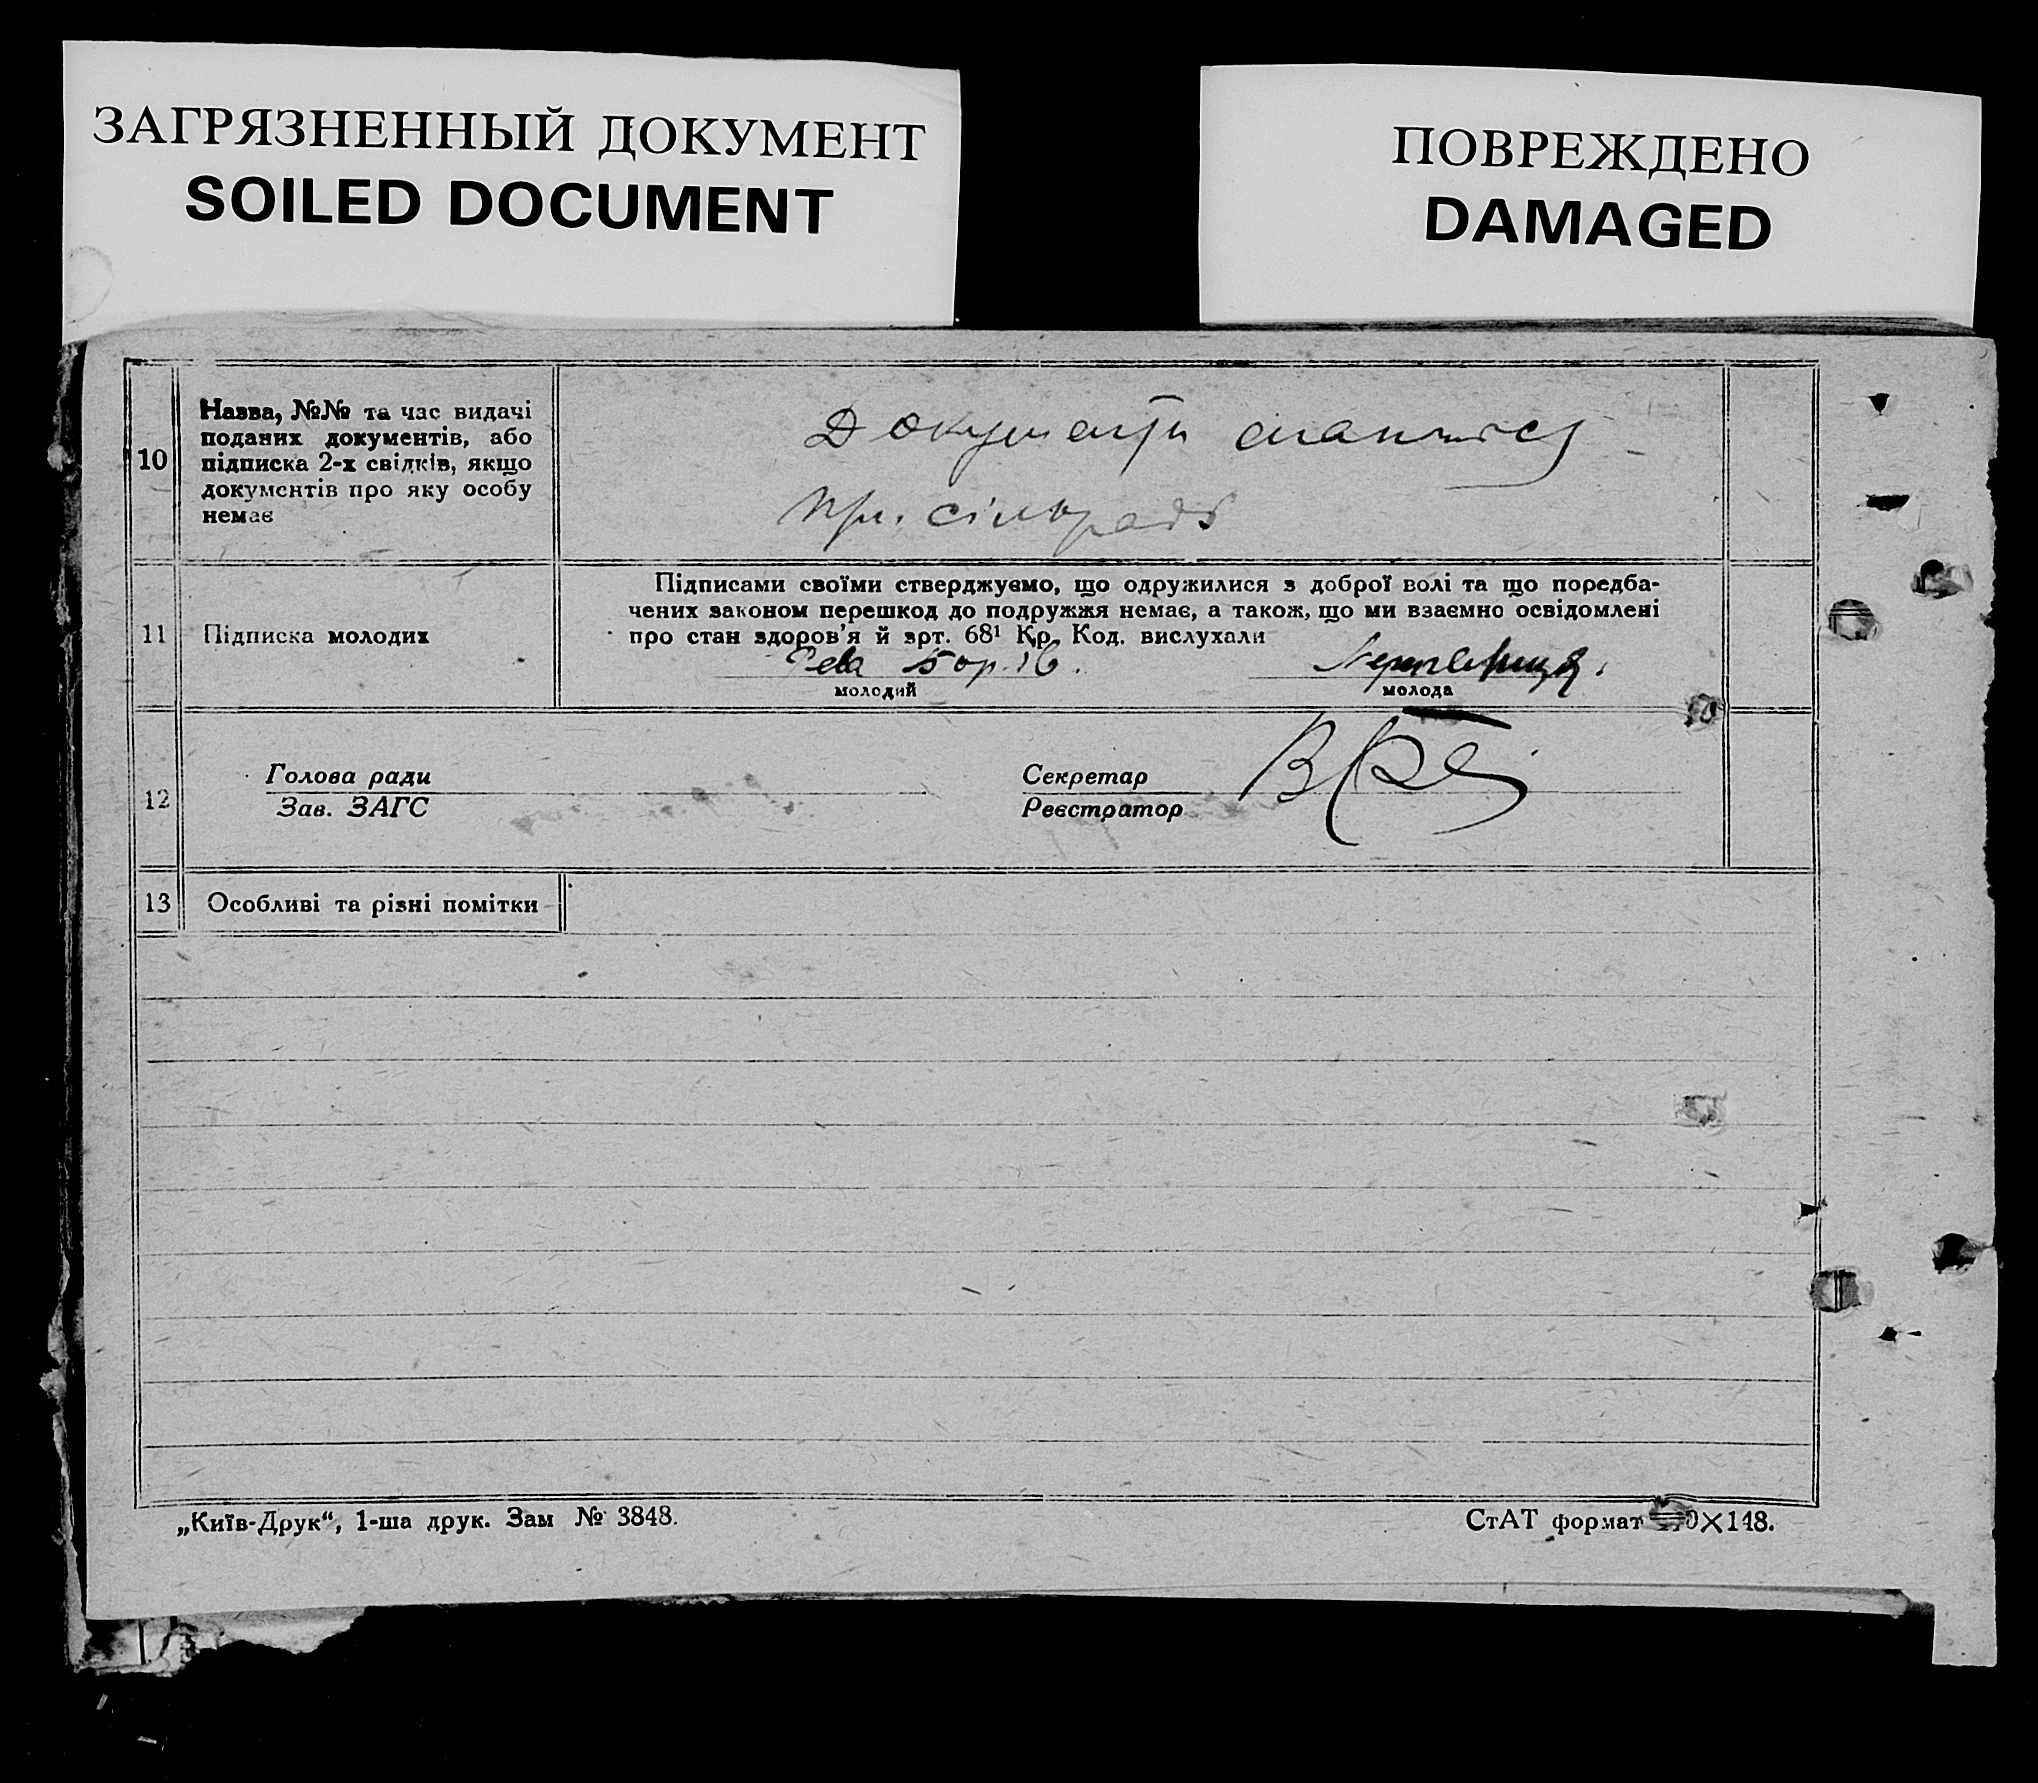 ЗАГРЯЗНЕННЫЙ ДОКУМЕНТ
SOILED DOCUMENT
ПОВРЕЖДЕНО
DAMAGED
10
Назва, №№ та час видачі
поданих документів, або
підписка 2-х свідків, якщо
документів про яку особу
немає
Документи
при. сільраді
11
Підписка молодих
Підписами своїми стверджуємо, що одружилися з доброї волі та що поредба-
чених законом перешкод до подружжя немає, а також, що ми взаємно освідомлені
про стан здоров'я й врт. 68¹ Кр. Код. вислухали
Рева Бор.
молодий
молода
12
Голова ради
Зав. ЗАГС
Секретар
Реєстратор
13
Особливі та різні помітки
„Київ-Друк“, 1-ша друк. Зам № 3848.
СтАТ формат ×148.